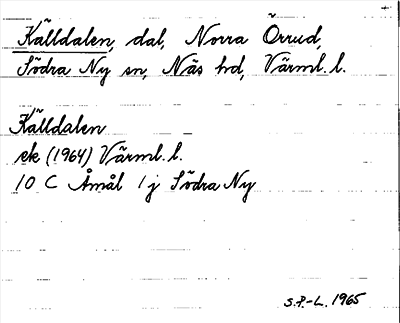 Källdalen, dal, Norra Örrud,
Södra Ny sn, Näs hd, Värml. l.
Källdalen
ek (1964) Värml. l.
10 C Åmål 1 j Södra Ny
S.P.-L. 1965